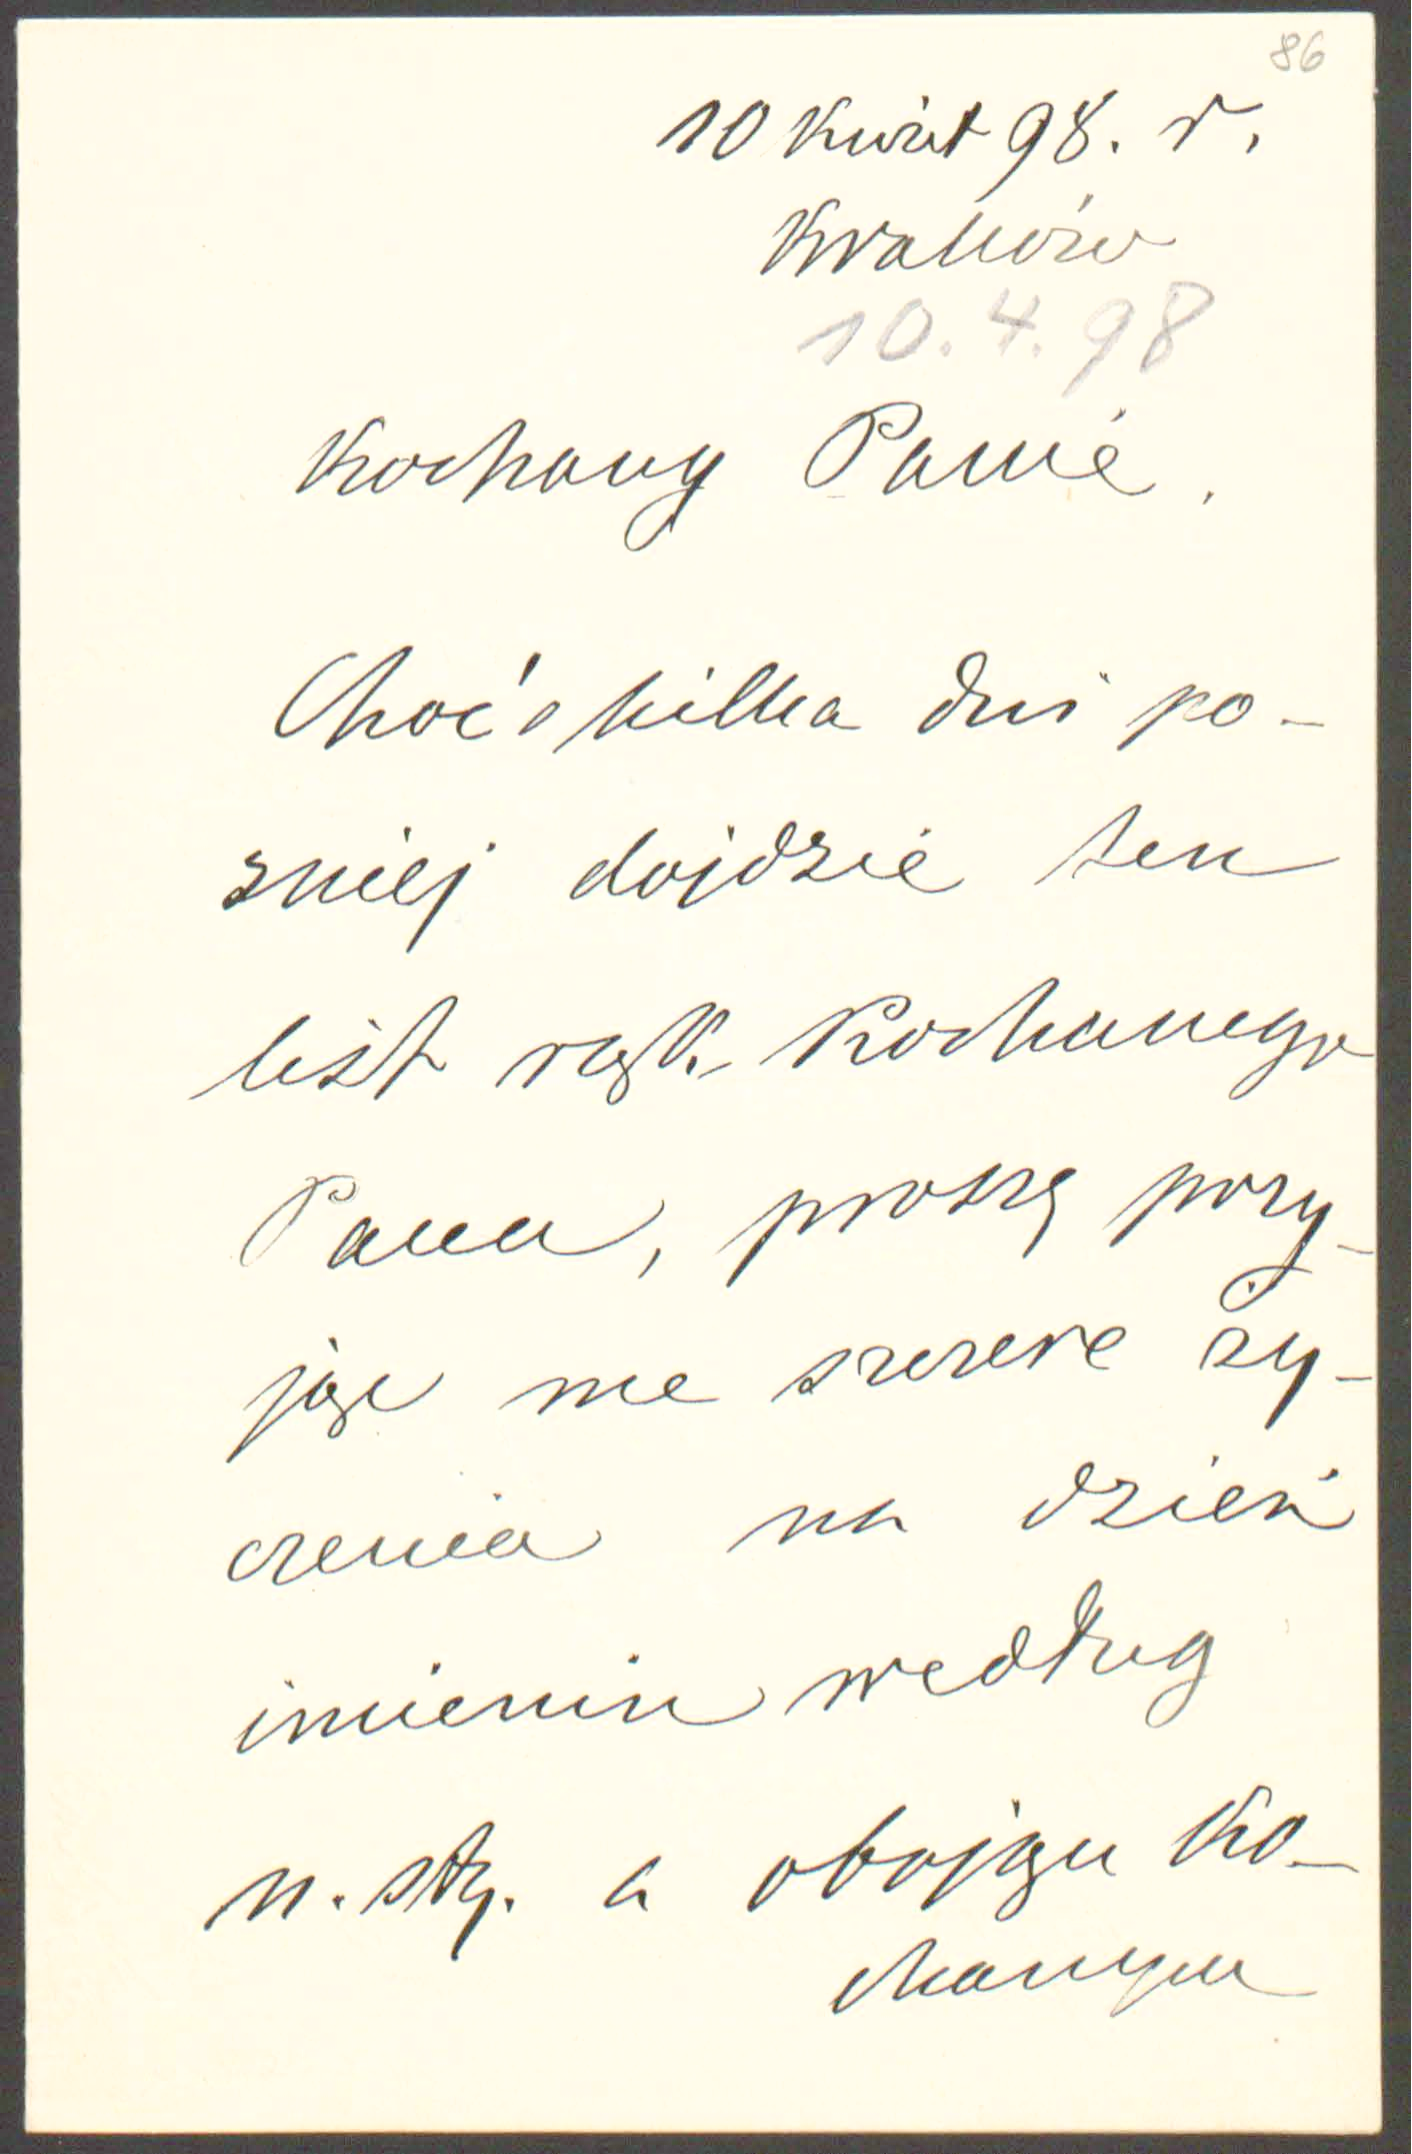 86
10 Kwiet 98. r.
Kraków
10.4.98
Kochany Panie.
Choć o kilka dni po-
zniej dojdzie ten
list rąk Kochanego
Pana, proszę przy-
jąć me szczere ży-
czenia na dzień
imienin według
n. sty. a obojgu Ko-
chanym